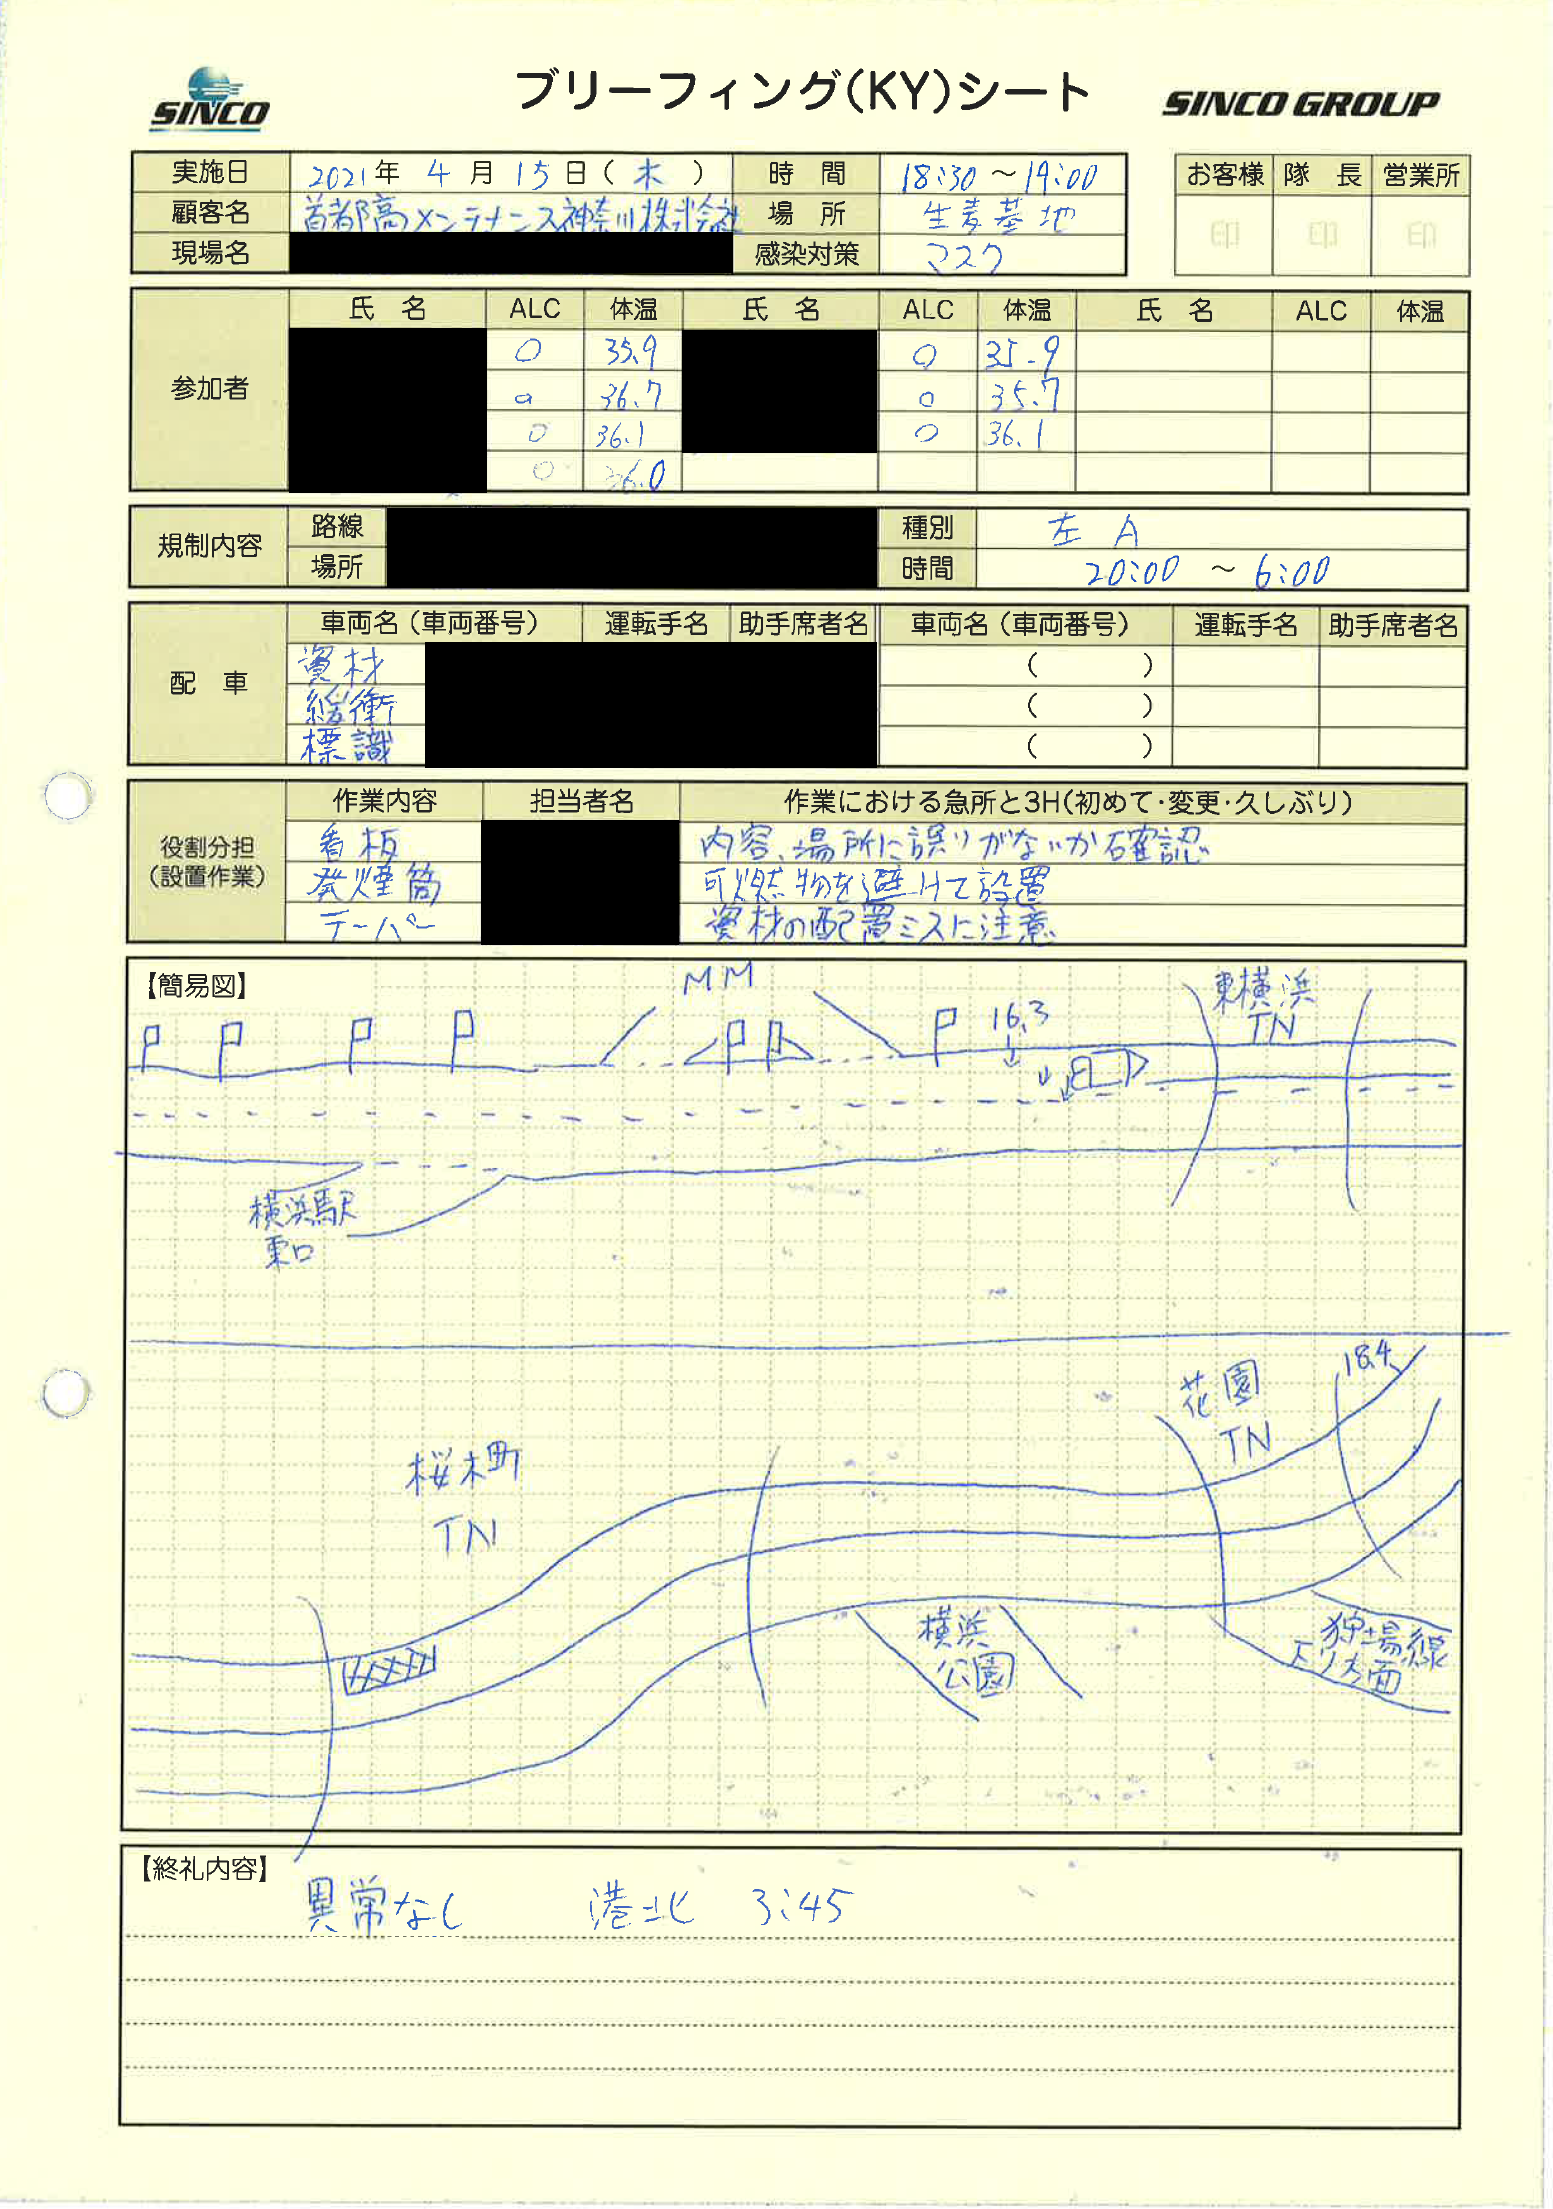 SINCO
ブリーフィング(KY)シート
SINCO GROUP
実施日 2021年 4月 15日(木) 時間 18:30〜19:00
顧客名 首都高メンテナンス神奈川株式会社 場所 生麦基地
現場名 感染対策 マスク
お客様 隊長 営業所
印 印 印
参加者
氏名 ALC 体温 氏名 ALC 体温 氏名 ALC 体温
○ 35.9 ○ 35.9
○ 36.7 ○ 35.7
○ 36.1 ○ 36.1
○ 36.0
規制内容
路線 種別 左 A
場所 時間 20:00 〜 6:00
配車
車両名(車両番号) 運転手名 助手席者名 車両名(車両番号) 運転手名 助手席者名
資材 ( )
緩衝 ( )
標識 ( )
役割分担
(設置作業)
作業内容 担当者名 作業における急所と3H(初めて・変更・久しぶり)
看板 内容、場所に誤りがないか確認
発煙筒 可燃物を避けて設置
テーパー 資材の配置ミスに注意
【簡易図】
MM
16.3
東横浜
TN
横浜駅
東口
桜木町
TN
花園
TN
18.4
横浜
公園
狩場線
より方面
【終礼内容】
異常なし 港北 3:45